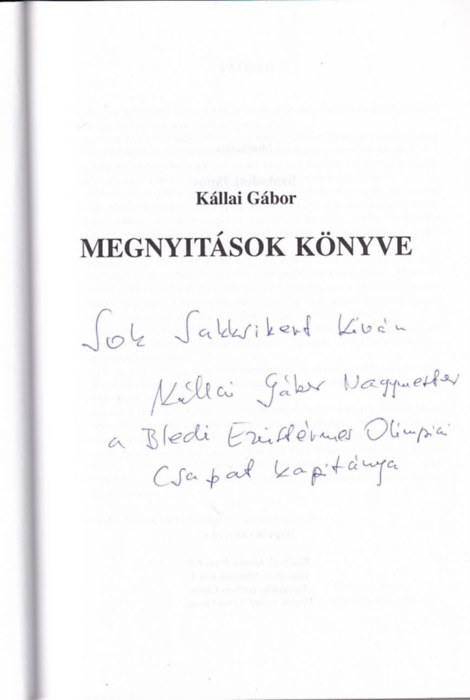 Kállai Gábor
MEGNYITÁSOK KÖNYVE
Sok Sakksikert Kíván
Kállai Gábor Nagymester
a Bledi Ezüstérmes Olimpiai
Csapat kapitánya